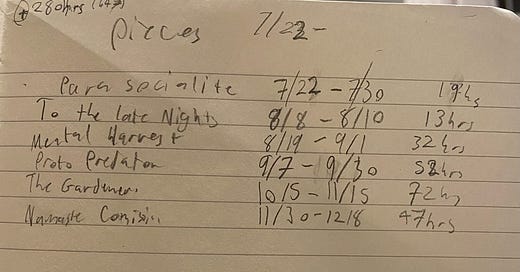 280hrs
pieces 7/22 -
Para socialite 7/22 - 7/30 19hs
To the late Nights 8/8 - 8/10 13hrs
Mental Harvest 8/19 - 9/1 32hrs
Proto Predator 9/7 - 9/30 52hrs
The Gardener 10/5 - 11/15 72hrs
Namaste 11/30 - 12/8 47hrs